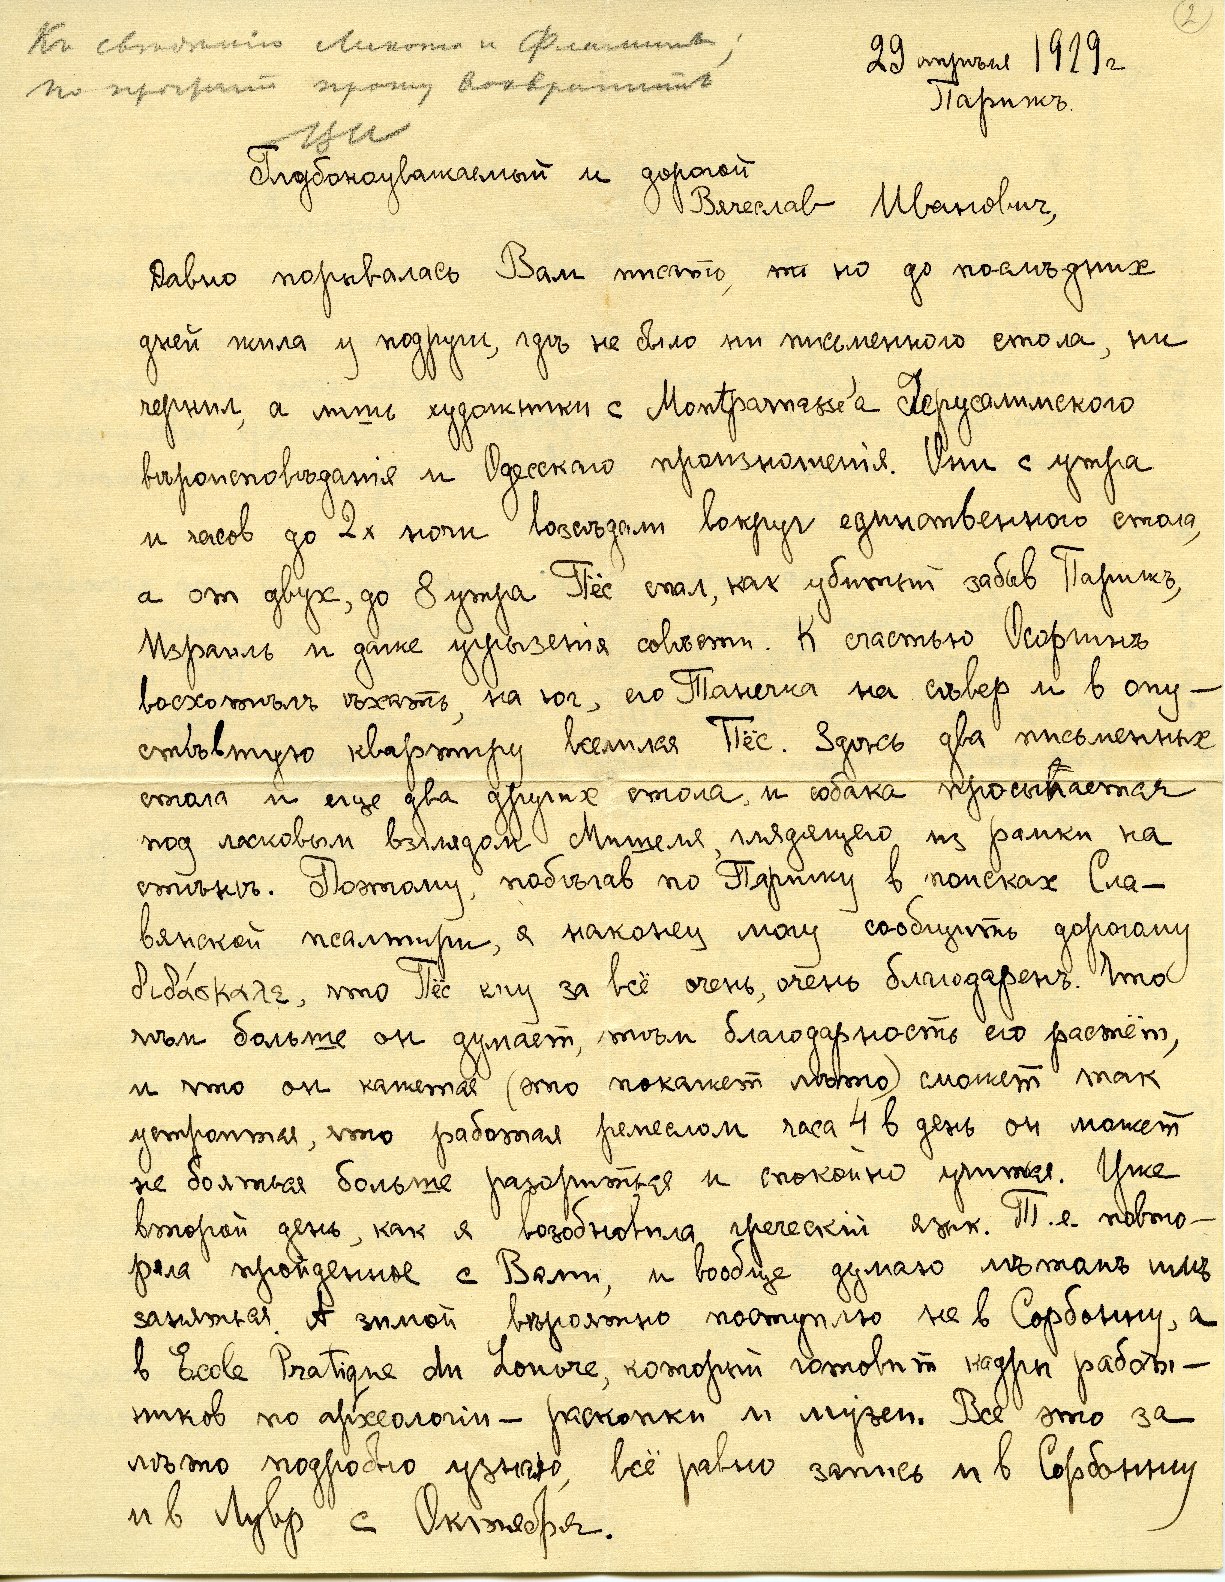 Къ свѣдѣнію Лидіи и Фламинги,
по прочтении прошу возвратить
ВИ
2
29 апрѣля 1929 г
Парижъ.
Глубокоуважаемый и дорогой
Вячеслав Иванович,
Давно порывалась Вам писать, но до послѣдних
дней жила у подруги, гдѣ не было ни письменного стола, ни
чернил, а лишь художники с Montparnasse'а Іерусалимского
вѣроисповѣданія и Одесскаго произношенія. Они с утра
и часов до 2х ночи возсѣдали вокруг единственного стола,
а от двух, до 8 утра Пёс спал, как убитый забыв Парижъ,
Израиль и даже угрызенія совѣсти. К счастью Осоргинъ
восхотѣлъ ѣхать, на юг, его Танечка на сѣвер и в опу–
стѣвшую квартиру вселился Пёс. Здѣсь два письменных
стола и еще два других стола, и собака просыпается
под ласковым взглядом Мишеля, глядящего из рамки на
стѣнѣ. Поэтому, побѣгав по Парижу в поисках Сла–
вянской псалтири, я наконец могу сообщить дорогому
διδάσκαλε, что Пёс ему за всё очень, очень благодаренъ. Что
чѣм больше он думает, тѣм благодарность его растёт,
и что он кажется (это покажет лѣто) сможет так
устроится, что работая ремеслом часа 4 в день он может
не бояться больше разориться и спокойно учится. Уже
второй день, как я возобновила греческій язык. Т.е. повто–
ряла пройденное с Вами, и вообще думаю лѣтомъ имъ
заняться. А зимой вѣроятно поступлю не в Сорбонну, а
в Ecole Pratique du Louvre, который готовит кадры работ–
ников по археологіи – раскопки и музеи. Все это за
лѣто подробно узнаю, всё равно запись и в Сорбонну
и в Лувр с Октября.